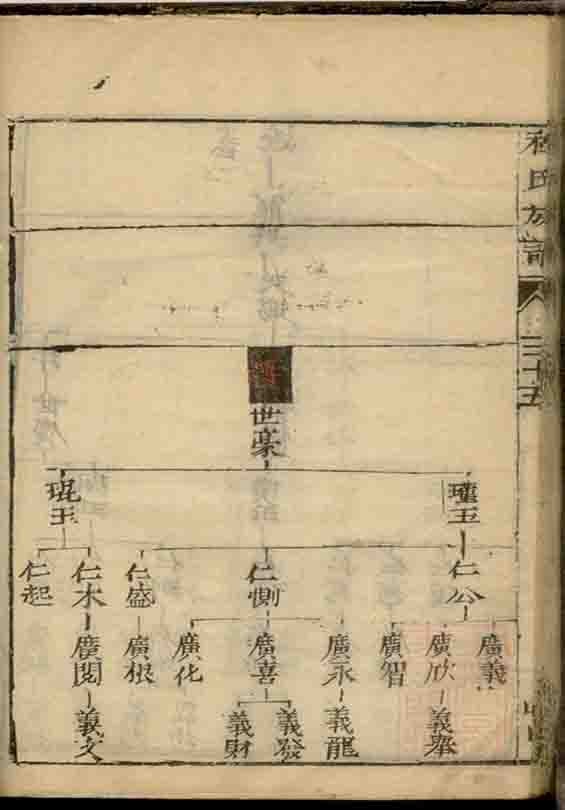 氏族譜
三十五
世豪
瑾玉
琨玉
仁公
仁惻
仁盛
仁木
仁起
廣義
廣欣
廣智
廣永
廣喜
廣化
廣根
廣閱
義舉
義龍
義發
義財
義文